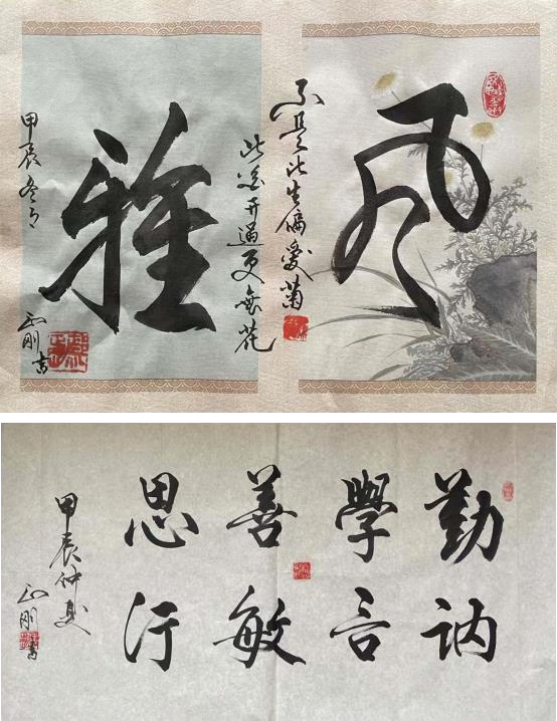 风
不是此生偏愛菊
此花开更無花
雅
甲辰冬月
正刚书
勤學善思
讷言敏行
甲辰仲夏
正刚書